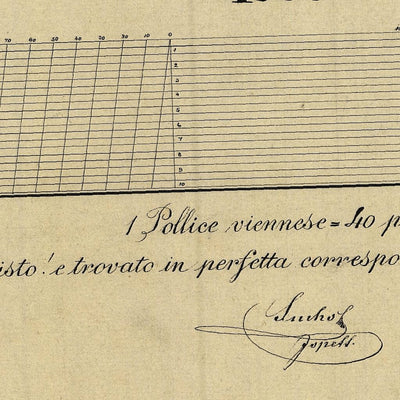 70 60 50 40 30 20 10 0
1
2
3
4
5
6
7
8
9
10
1 Pollice viennese = 40 p
isto! e trovato in perfetta correspo
Suchol
Jspett.